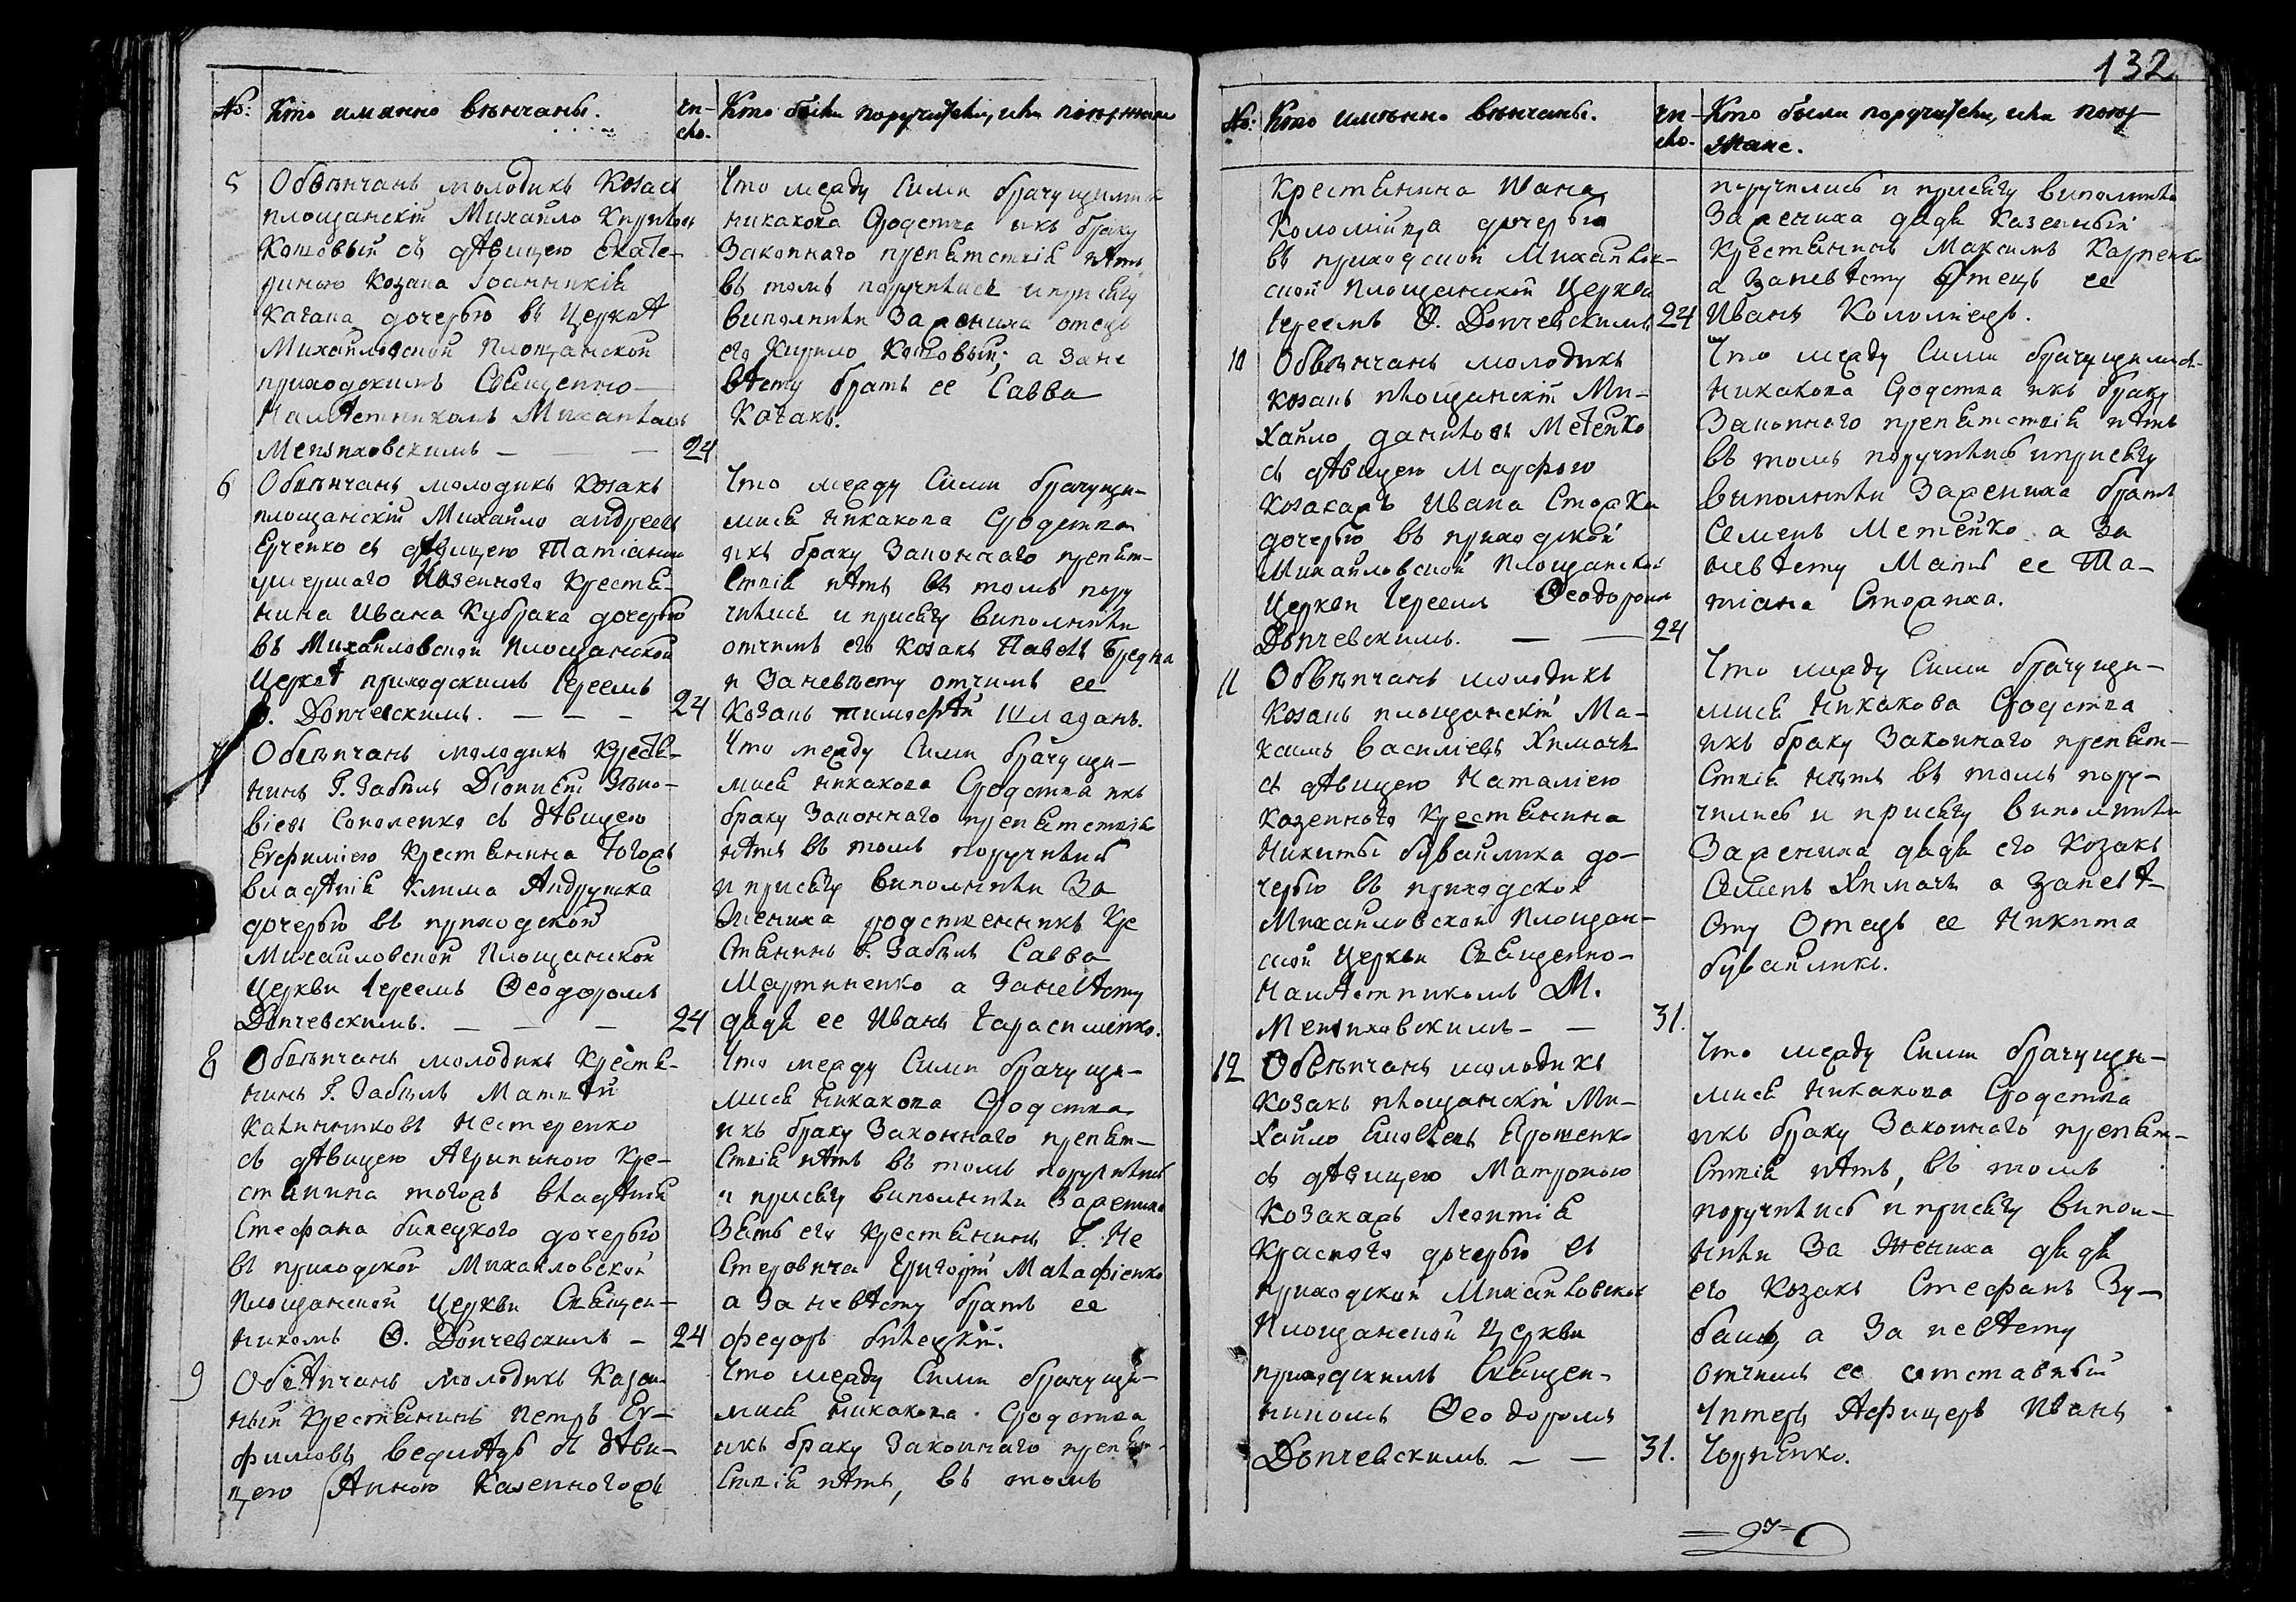 132
№: Кто имянно вѣнчаны.
чи-
сло.
Кто были поручители, или
5 Обвѣнчанъ молодикъ Козакъ
площанскій Михайло Кириловъ
Котовый съ дѣвицею Екате-
риною Козака Іоанникія
Качана дочерью въ Церквѣ
Михайловской Площанской
приходскимъ Священно-
Намѣстникомъ Михаиломъ
Мензиховскимъ — — — 24
Что между Сими брачущимися
никакова Сродства икъ браку
Законнаго препятствія нѣтъ
въ томъ поручились иприсягу
виполнили Зажениха отецъ
его Кирило Котовый; а Зане
вѣсту братъ ее Савва
Качанъ.
6 Обвѣнчанъ молодикъ Козакъ
площанскій Михайло андреевъ
Ерченко съ дѣвицею Татіаною
умершаго Казенного Крестя-
нина Ивана Кубрака дочерью
въ Михайловской Площанской
Церквѣ приходскимъ Іереемъ
Ѳ. Dопчевскимъ. — — — 24
Что между Сими брачущи-
мися никакова Сродства
икъ браку Законнаго препят-
ствія нѣтъ въ томъ пору
чились и присягу виполнили
отчимъ его Козакъ Павелъ Бредна
и Заневѣсту отчимъ ее
Козакъ тимофѣй Шладанъ.
7 Обвѣнчанъ молодикъ Крестя-
нинъ Г. Забѣлъ Dіонисій Зѣно-
віевъ Соколенко съ дѣвицею
Евфиміею Крестянина Тогожъ
владѣнія Клима Андрушка
дочерью въ приходской
Михайловской Площанской
Церкви Іереемъ Ѳеодоромъ
Dопчевскимъ. — — — 24
Что между Сими брачущи-
мися никакова Сродства икъ
браку Законнаго препятствія
нѣтъ въ томъ поручились
и присягу виполнили За
Жениха родственникъ Кре
стянинъ Г. Забѣлъ Савва
Мартиненко а Заневѣсту
дядя ее Иванъ Гарасименко.
8 Обвѣнчанъ молодикъ Крестя-
нинъ Г. Забѣлъ Матвѣй
Калиниковъ Нестеренко
съ дѣвицею Агрипиною Кре-
стянина тогожъ владѣнія
Стефана билецкого дочерью
въ приходской Михайловской
Площанской Церкви Священ-
никомъ Ѳ. Dопчевскимъ — 24
Что между Сими брачущи-
мися никакова Сродства
икъ браку Законнаго препят-
ствія нѣтъ въ томъ поручились
и присягу виполнили Зажениха
Зять его Крестянинъ Г. Не
стеровича Григорій Малафіенко
а За невѣсту братъ ее
федоръ билецкій.
9 Обвѣнчанъ молодикъ Казен-
ный Крестянинъ Петръ Ев-
фимовъ ведмѣдь съ дѣви-
цею Анною Казенногожъ
Что между Сими брачущи-
мися никакова Сродства
икъ браку Законнаго препят-
ствія нѣтъ, въ томъ
№: Кто имѣнно вѣнчаны.
чи-
сло.
Кто были поручители, или
Крестянина Ивана
Коломійца дочерью
въ приходской Михайлов-
ской Площанской Церкви
Іереемъ Ѳ. Dопчевскимъ 24
поручились и присягу виполнили
Зажениха дядя Казенный
Крестянинъ Максимъ Карпенко
а Заневѣсту Отецъ ее
Иванъ Коломіецъ.
10 Обвѣнчанъ молодикъ
козакъ площанскій Ми-
хайло даниловъ Метейко
съ дѣвицею Марфою
козакажъ Ивана Сторжка
дочерью въ приходской
Михайловской Площанской
Церкви Іереемъ Ѳеодоромъ
Dопчевскимъ. — — 24
Что между Сими брачущимися
Никакова Сродства икъ браку
Законнаго препятствія нѣтъ
въ томъ поручились иприсягу
виполнили Зажениха братъ
Семенъ Метейко а За
невѣсту Мать ее Та-
тіана
11 Обвѣнчанъ молодикъ
Козакъ площанскій Ма-
ксимъ василіевъ Химачъ
съ дѣвицею Наталіею
казенного Крестянина
Никиты бувайлика до-
черью въ приходской
Михайловской Площан-
ской Церкви Священно-
Намѣстникомъ М.
Мензиховскимъ — — 31.
Что между Сими брачущи-
мися Никакова Сродства
икъ браку Законнаго препят-
ствія нѣтъ въ томъ пору-
чились и присягу виполнили
Зажениха дядя его Козакъ
Семенъ Химачъ а Заневѣ-
сту Отецъ ее Никита
бувайликъ.
12 Обвѣнчанъ молодикъ
Козакъ площанскій Ми-
хайло Ерошенко
съ дѣвицею Матроною
Козакажъ Леонтія
Красного дочерью въ
приходской Михайловской
Площанской Церкви
приходскимъ Священ-
никомъ Ѳеодоромъ
Dопчевскимъ — — 31.
Что между Сими брачущи-
мися Никакова Сродства
икъ браку Законнаго препят-
ствія нѣтъ, въ томъ
поручились и присягу випол-
нили За Жениха дядя
его Козакъ Стефанъ Зу-
а За невѣсту
отчимъ ее отставный
Унтеръ Афицеръ Иванъ